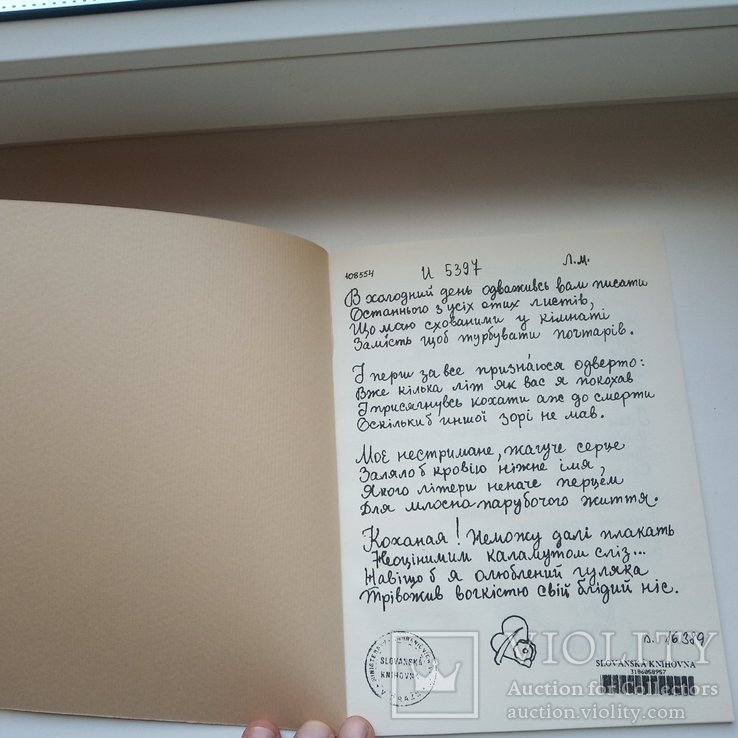 108554
И 5397
Л.М.
В холодний день одваживсь вам писати
Останнього з усіх отих листів,
Що маю схованими у кімнаті
Замість щоб турбувати почтарів.
І перш за все признаюся одверто:
Вже кілька літ як вас я покохав
І присягнувсь кохати аж до смерти
Оскільки б иншої зорі не мав.
Моє нестримане, жагуче серце
Заляло б кровію ніжне імя,
Якого літери неначе перцем
Для млосна парубочого життя.
Коханая! Неможу далі плакать
Неоцінимим каламутом сліз...
Навіщо б я олюблений гуляка
Трівожив вогкістю свій блідий ніс.
SLOVANSKÁ
KNIHOVNA
V PRAZE
16389
SLOVANSKÁ KNIHOVNA
3186058957
VIOLITY
Auction for Collectors
auction.violity.com